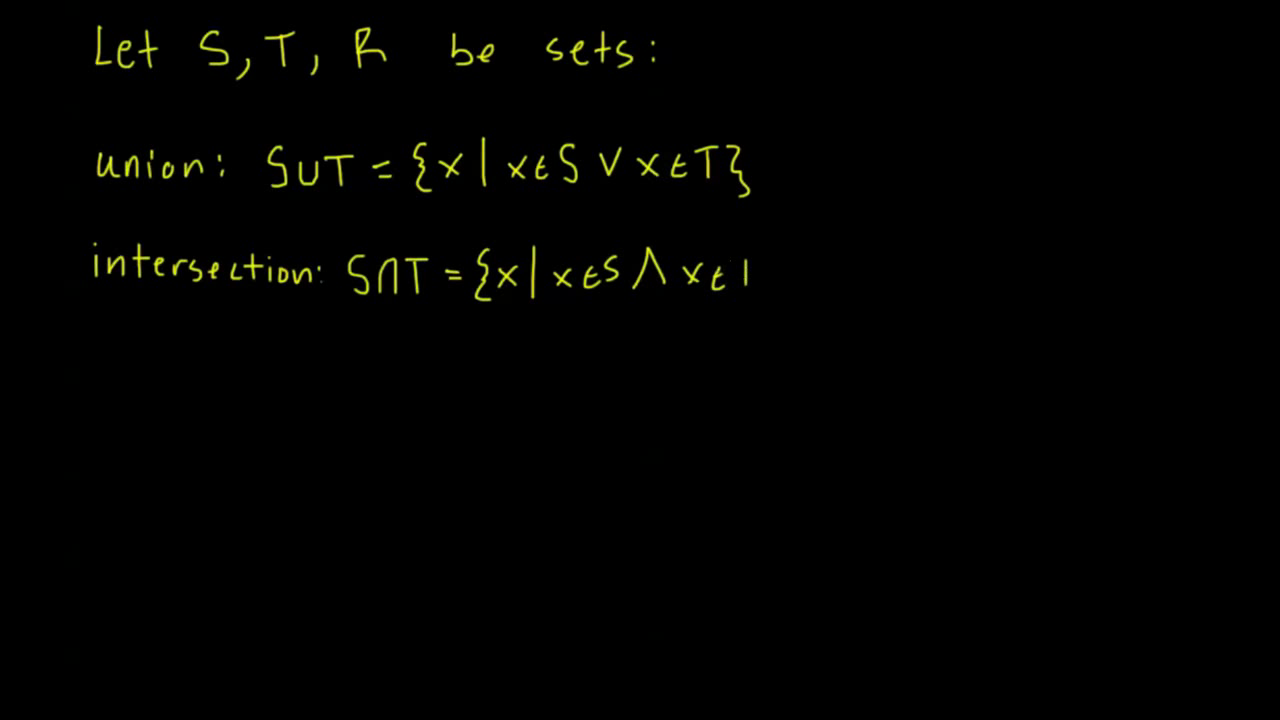 Let S, T, R be sets:
union: S∪T = {x | x∈S ∨ x∈T}
intersection: S∩T = {x | x∈S ∧ x∈